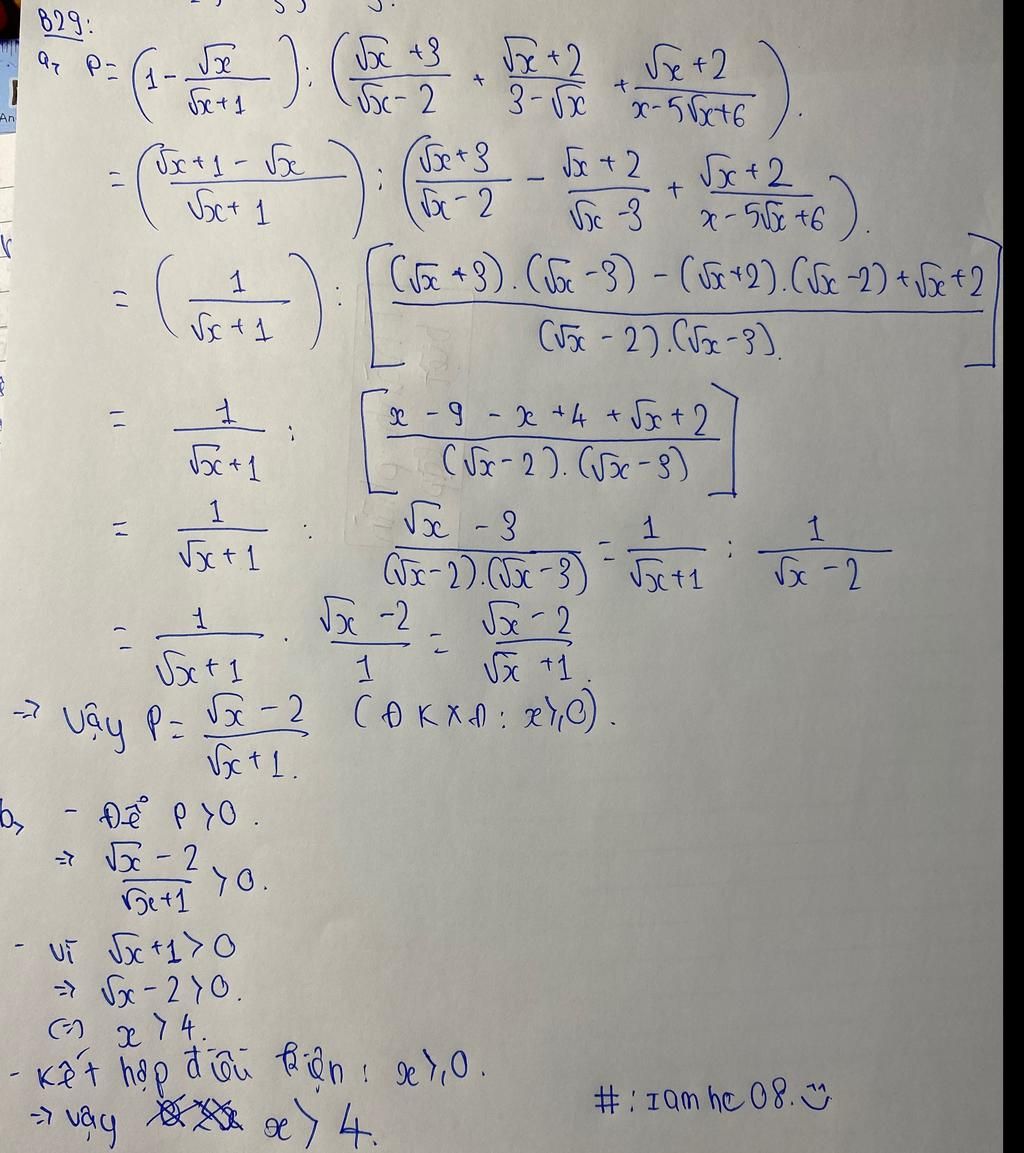 B29:
a, P = (1 - √x/(√x+1)) : ((√x+3)/(√x-2) + (√x+2)/(3-√x) + (√x+2)/(x-5√x+6)).
= ((√x+1-√x)/(√x+1)) : ((√x+3)/(√x-2) - (√x+2)/(√x-3) + (√x+2)/(x-5√x+6)).
= (1/(√x+1)) : [((√x+3).(√x-3) - (√x+2).(√x-2) + √x+2)/((√x-2).(√x-3).)]
= 1/(√x+1) : [(x-9-x+4+√x+2)/((√x-2).(√x-3))]
= 1/(√x+1) : (√x-3)/((√x-2).(√x-3)) = 1/(√x+1) : 1/(√x-2)
= 1/(√x+1) . (√x-2)/1 = (√x-2)/(√x+1).
=> Vậy P = (√x-2)/(√x+1). (ĐKXĐ: x≥0).
b, - Để P>0.
=> (√x-2)/(√x+1) > 0.
- Vì √x+1>0
=> √x-2>0.
<=> x>4.
- Kết hợp điều kiện: x≥0.
=> Vậy x>4.
#: Iamhc08.